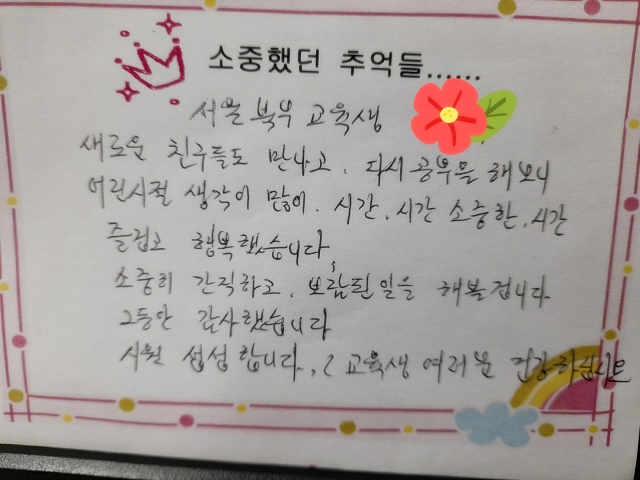 소중했던 추억들......
서울 북부 교육생
새로운 친구들도 만나고. 다시 공부을 해보니
어린시절 생각이 많이. 시간. 시간 소중한. 시간
즐겁고 행복했습니다
소중히 간직하고. 보람된일을 해볼겁니다
그동안 감사했습니다
시원 섭섭합니다. 교육생 여러분 건강하십시요